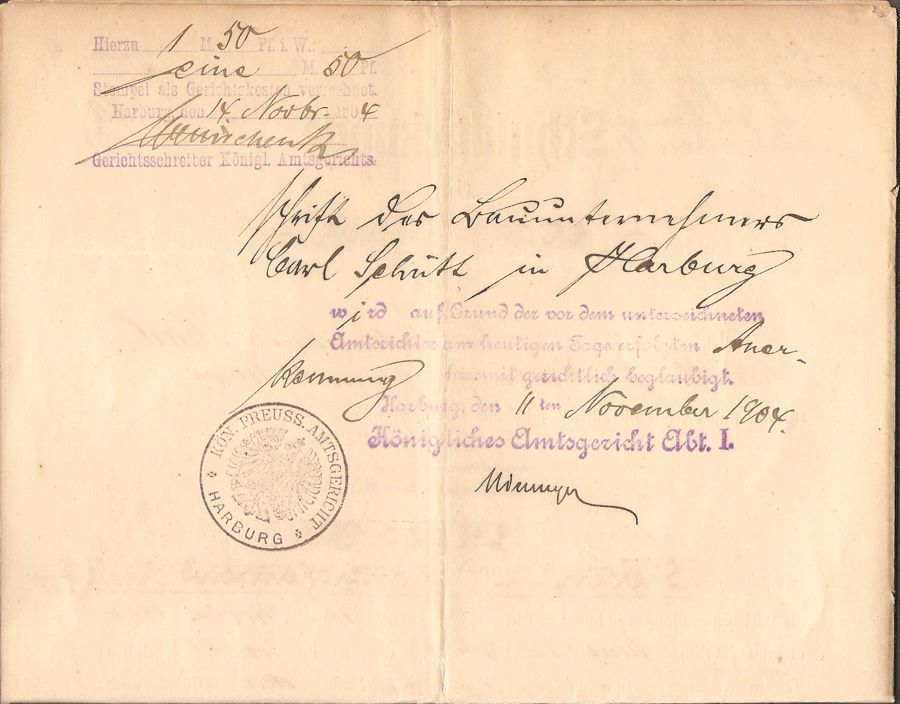 Hierzu 1 M. 50 Pf. i. W.:
eine M. 50 Pf.
Stempel als Gerichtskosten verrechnet.
Harburg, den 14 Novbr. 1904
Gerichtsschreiber Königl. Amtsgerichts.
schrift des Bauunternehmers
Carl Schütt in Harburg
wird auf Grund der vor dem unterzeichneten
Amtsrichter am heutigen Tage erfolgten Aner-
kennung hiermit gerichtlich beglaubigt.
Harburg, den 11 ten November 1904.
Königliches Amtsgericht Abt. I.
KÖN. PREUSS. AMTSGERICHT
HARBURG